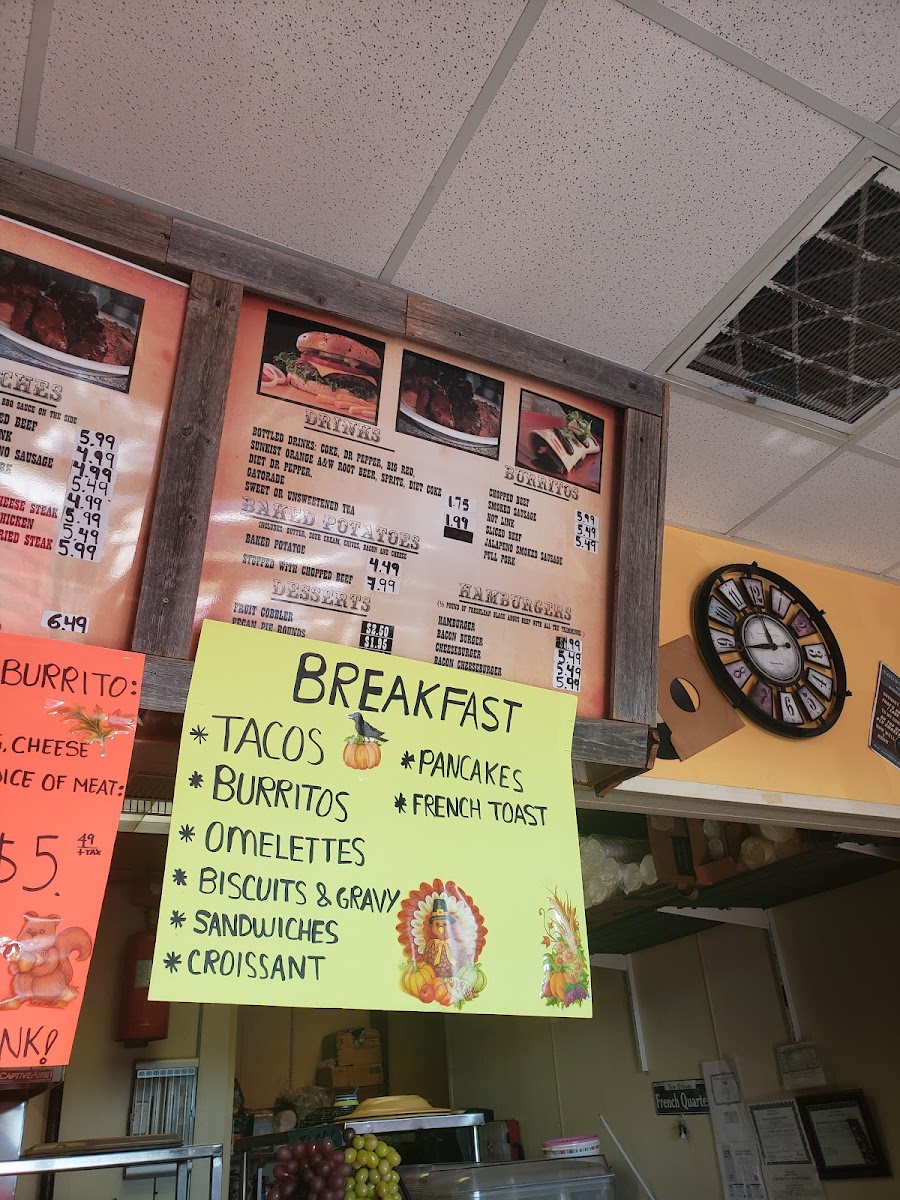 CHES
BBQ SAUCE ON THE SIDE
ED BEEF
NK
NO SAUSAGE
RK
HEESE STEAK
HICKEN
RIED STEAK
5.99
4.99
4.99
5.49
4.99
5.99
5.49
5.99
6.49
DRINKS
BOTTLED DRINKS: COKE, DR PEPPER, BIG RED,
SUNKIST ORANGE A&W ROOT BEER, SPRITE, DIET COKE
DIET DR PEPPER,
GATORADE
SWEET OR UNSWEETENED TEA
1.75
1.99
BAKED POTATOES
INCLUDES: BUTTER, SOUR CREAM, CHIVES, BACON AND CHEESE
BAKED POTATOE 4.49
STUFFED WITH CHOPPED BEEF 7.99
DESSERTS
FRUIT COBBLER $2.50
PECAN PIE ROUNDS $1.95
BURRITOS
CHOPPED BEEF
SMOKED SAUSAGE
HOT LINK
SLICED BEEF
JALAPENO SMOKED SAUSAGE
PULL PORK
5.99
5.49
5.49
HAMBURGERS
HAMBURGER
BACON BURGER 5.49
CHEESEBURGER 5.49
BACON CHEESEBURGER 5.99
BURRITO:
, CHEESE
OICE OF MEAT:
$5.49
+TAX
NK!
CAPTIVEAIRE
BREAKFAST
* TACOS
* BURRITOS
* OMELETTES
* BISCUITS & GRAVY
* SANDWICHES
* CROISSANT
* PANCAKES
* FRENCH TOAST
12
1
2
3
4
5
6
7
8
9
10
11
New Orleans
French Quarter